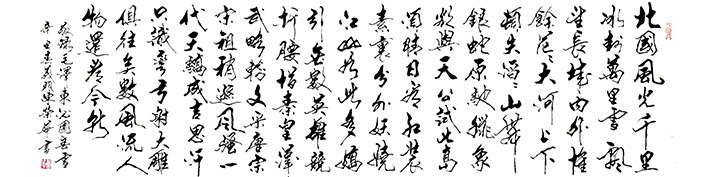 北國風光千里
冰封萬里雪飄
望長城內外惟
餘莽莽大河上下
頓失滔滔山舞
銀蛇原馳蠟象
欲與天公試比高
須晴日看紅裝
素裹分外妖嬈
江山如此多嬌
引無數英雄競
折腰惜秦皇漢
武略輸文采唐宗
宋祖稍遜風騷一
代天驕成吉思汗
只識彎弓射大雕
俱往矣數風流人
物還看今朝
敬錄毛澤東沁園春雪
辛丑書